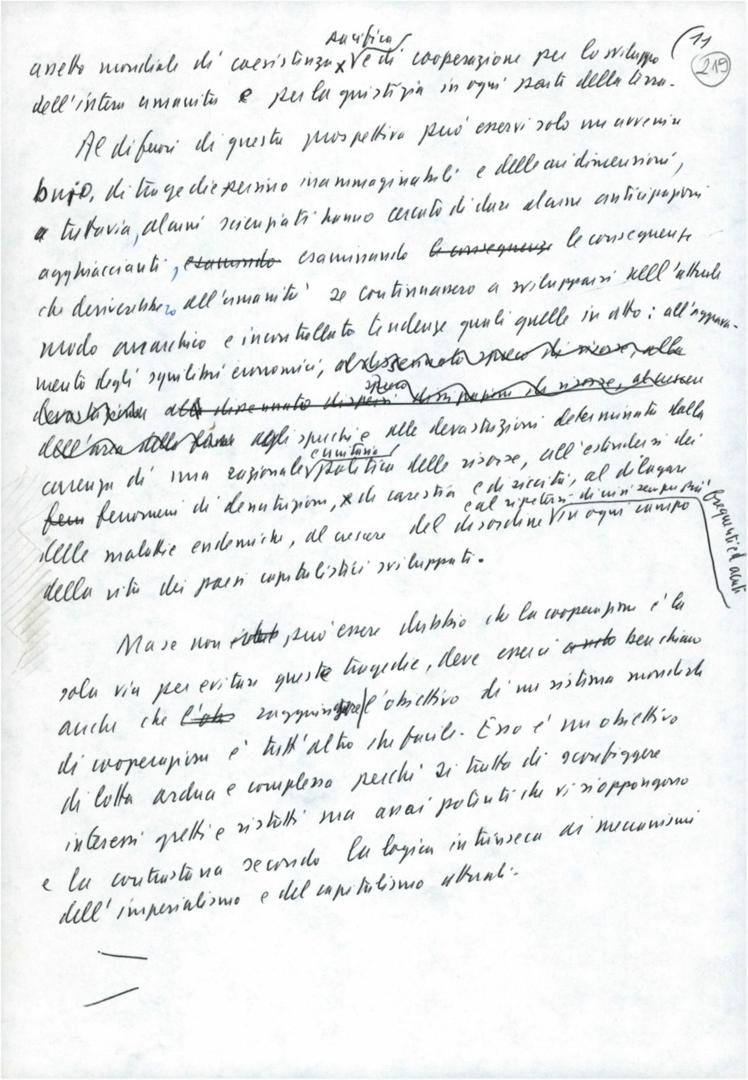 (11
219
pacifica
assetto mondiale di coesistenza e di cooperazione per lo sviluppo
dell'intera umanità e per la giustizia in ogni parte della terra.
Al di fuori di questa prospettiva può esservi solo un avvenire
buio, di tragedie persino inimmaginabili e delle cui dimensioni,
tuttavia, alcuni scienziati hanno cercato di dare alcune anticipazioni
agghiaccianti, esaminando esaminando le conseguenze le conseguenze
che deriverebbero all'umanità se continuassero a svilupparsi nell'attuale
modo anarchico e incontrollato tendenze quali quelle in atto: all'aggrava-
mento degli squilibri economici, al dissennato spreco di risorse, alla
devastazione al dissennato dissipazioni di risorse, ad
dell' agli sprechi e alle devastazioni determinate dalla
unitaria
carenza di una razionale politica delle risorse, all'estendersi dei
fenomeni di denutrizione, di carestia e di siccità, al dilagare
e al ripetersi di crisi sempre più
frequenti ed acute
delle malattie endemiche, al crescere del disordine in ogni campo
della vita dei paesi capitalistici sviluppati.
Ma se non può essere dubbio che la cooperazione è la
sola via per evitare queste tragedie, deve esserci ben chiaro
anche che raggiungere l'obiettivo di un sistema mondiale
di cooperazione è tutt'altro che facile. Esso è un obiettivo
di lotta ardua e complessa perché si tratta di sconfiggere
interessi gretti e ristretti ma assai potenti che vi si oppongono
e la contrastano secondo la logica intrinseca di meccanismi
dell'imperialismo e del capitalismo attuali.